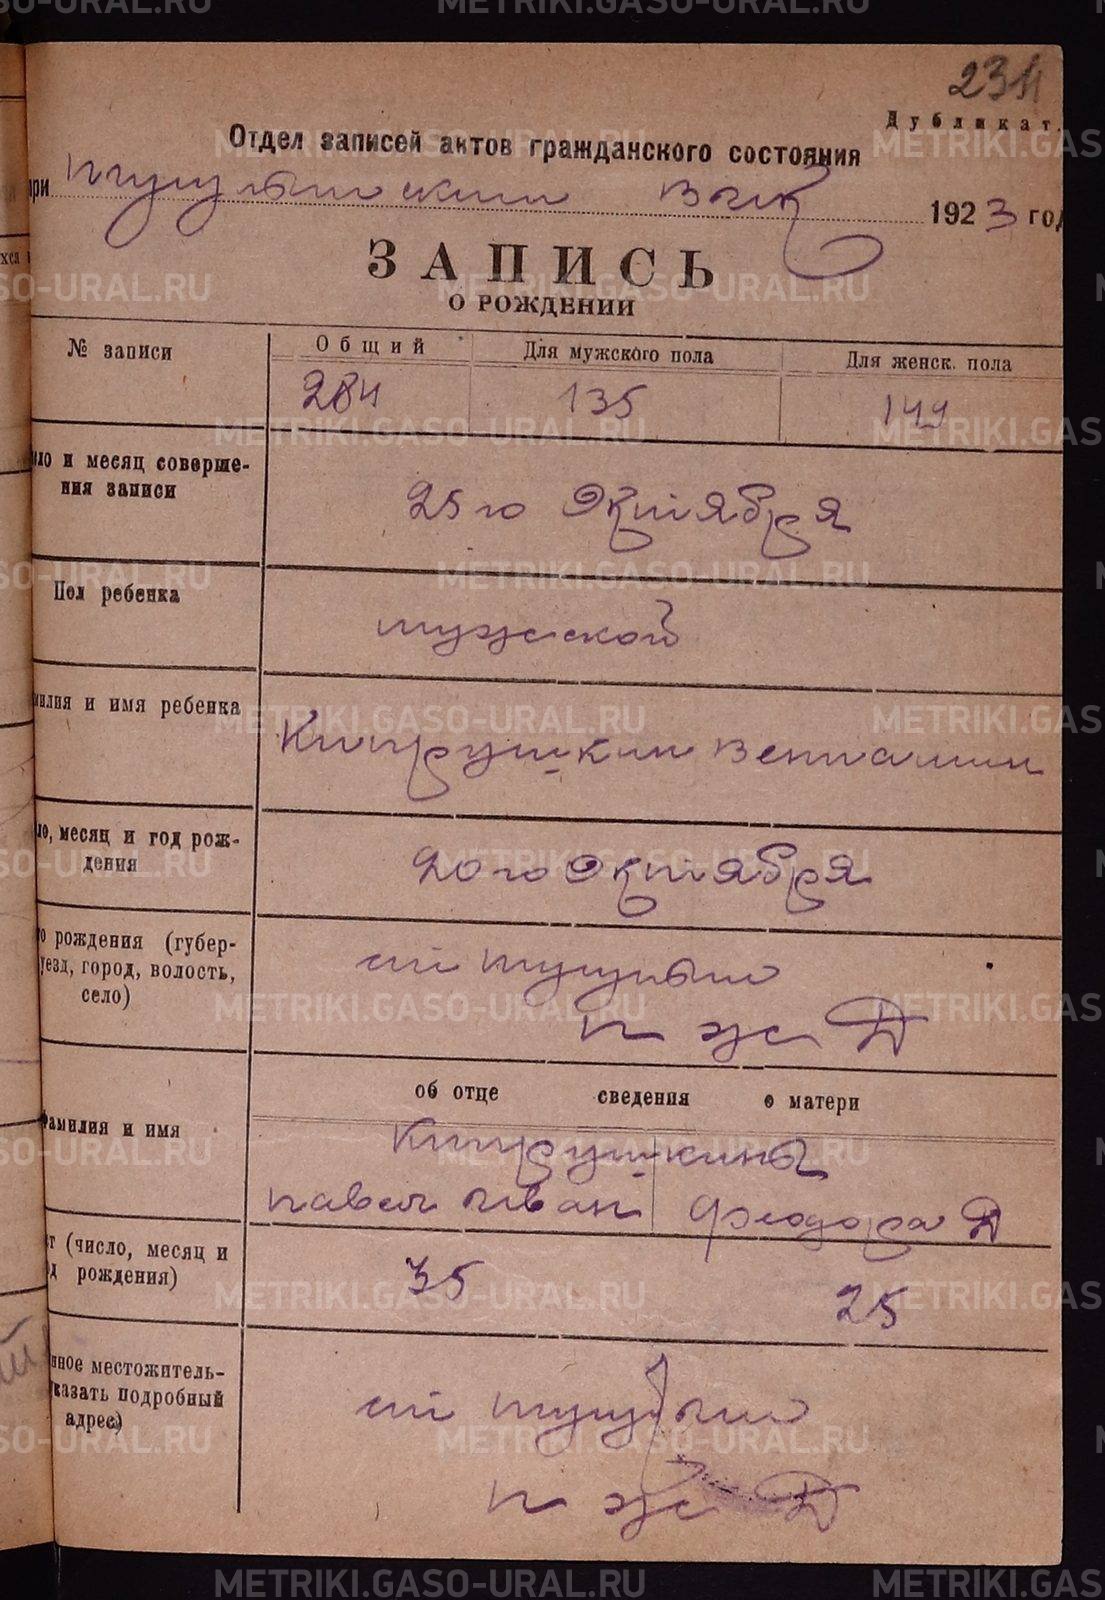 234
Дубликат.
Отдел записей актов гражданского состояния
при тугулымским вик 1923 год
ЗАПИСЬ
О РОЖДЕНИИ
№ записи
Общий
Для мужского пола
Для женск. пола
284
135
149
ло и месяц соверше-
ния записи
25го Октября
Пол ребенка
мужской
милия и имя ребенка
Кипрушкин Вениамин
ло, месяц и год рож-
дения
20го Октября
о рождения (губер-
уезд, город, волость,
село)
ст тугулым
п ж Д
об отце сведения о матери
Фамилия и имя
Кипрушкины
павел Иван Феодора Д
т (число, месяц и
д рождения)
35
25
нное местожитель-
казать подробный
адрес)
ст тугулым
п ж Д
METRIKI.GASO-URAL.RU